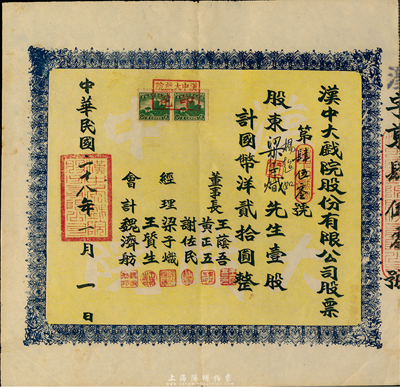 漢中大戲院股份有限公司股票
第肆伍叁號
股東梁子熾先生壹股
計國幣洋貳拾圓整
董事長
王蔭吾
黃正五
謝佐民
經理
梁子熾
王贊生
會計
魏濟舫
中華民國二十八年一月一日
漢字第肆伍叁號
上海陽明拍賣